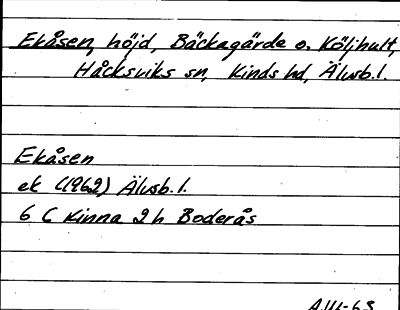 Ekåsen, höjd, Bäckagärde o. Köljhult,
Håcksviks sn, Kinds hd, Älvsb.l.
Ekåsen
ek (1962) Älvsb.l.
6 C Kinna 2h Boderås